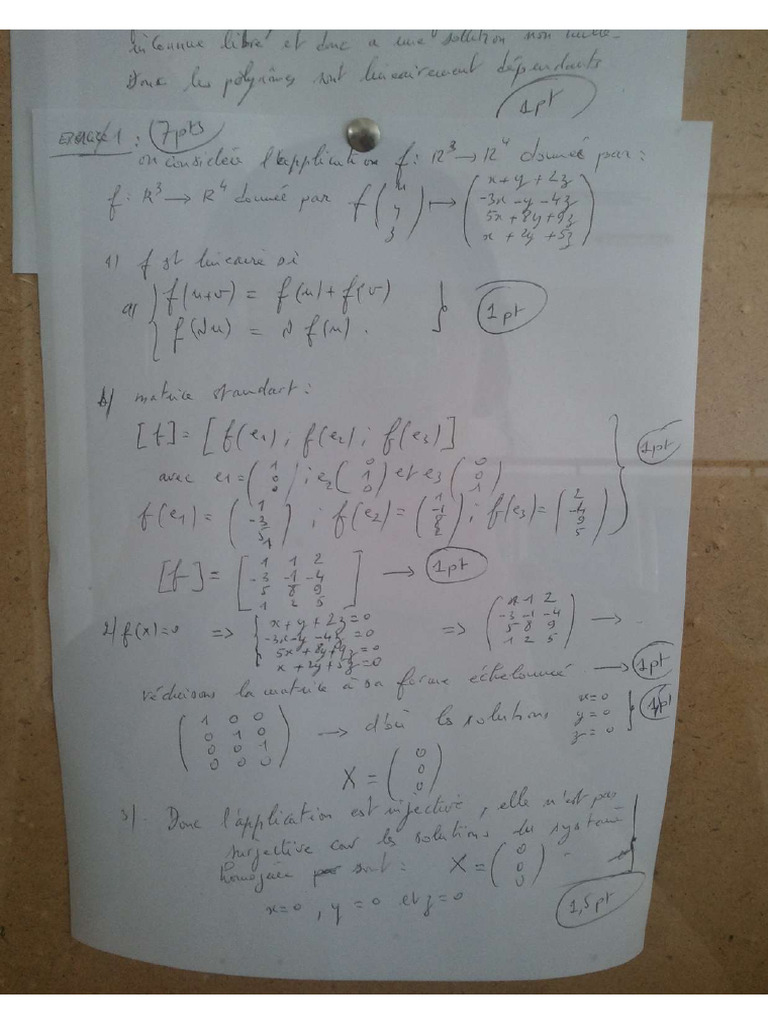 inconnue libre et donc a une solution non nulle.
Donc les polynômes sont linéairement dépendants
1pt
EXERCICE 1 : 7pts
on considère l'application f : R³ → R⁴ donnée par :
f : R³ → R⁴ donnée par f (x y z) ↦ (x + y + 2z
-3x - y - 4z
5x + 8y + 9z
x + 2y + 5z)
1) f est linéaire si
a) { f(u+v) = f(u) + f(v)
f(λu) = λ f(u) .
1pt
b) matrice standart :
[f] = [f(e1) ; f(e2) ; f(e3)]
avec e1 = (1 0 0) ; e2 (0 1 0) et e3 (0 0 1)
1pt
f(e1) = (1 -3 5 1) ; f(e2) = (1 -1 8 2) ; f(e3) = (2 -4 9 5)
[f] = [1 1 2
-3 -1 -4
5 8 9
1 2 5] → 1pt
2) f(x)=0 => { x + y + 2z = 0
-3x - y - 4z = 0
5x + 8y + 9z = 0
x + 2y + 5z = 0
=> (1 1 2
-3 -1 -4
5 8 9
1 2 5) →
réduisons la matrice à sa forme échelonnée → 1pt
(1 0 0
0 1 0
0 0 1
0 0 0) → d'où les solutions x = 0
y = 0
z = 0 } 1pt
X = (0 0 0)
3) Donc l'application est injective, elle n'est pas
surjective car les solutions du système
homogène sont : X = (0 0 0)
x=0 , y = 0 et z = 0
1,5pt